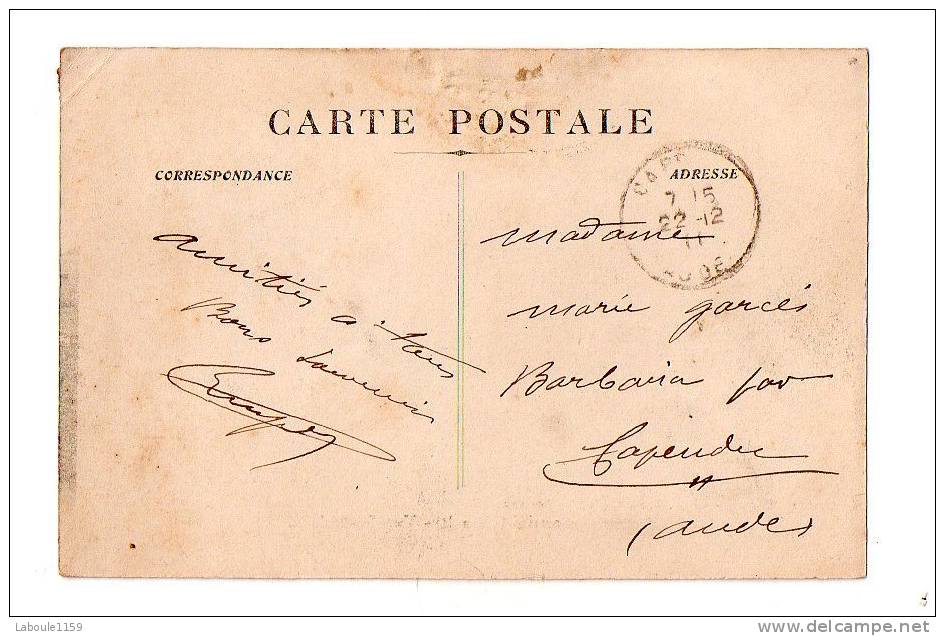 CARTE POSTALE
CORRESPONDANCE
amitiés a tous
Bons Souvenirs
ADRESSE
7 15
22 -12
11
AUDE
madame
marie garcés
Barbaira par
Capendu
(aude)
Laboule1159
delcampe.net